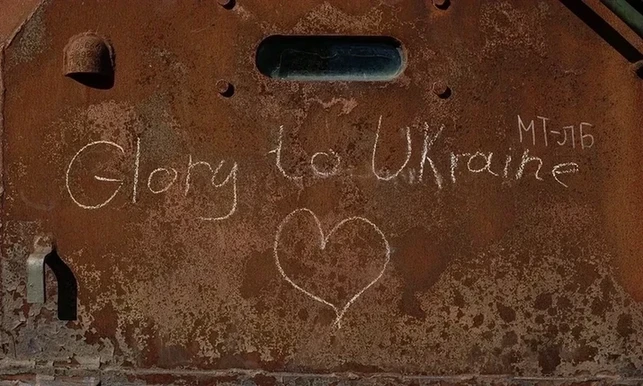 МТ-ЛБ
Glory to Ukraine